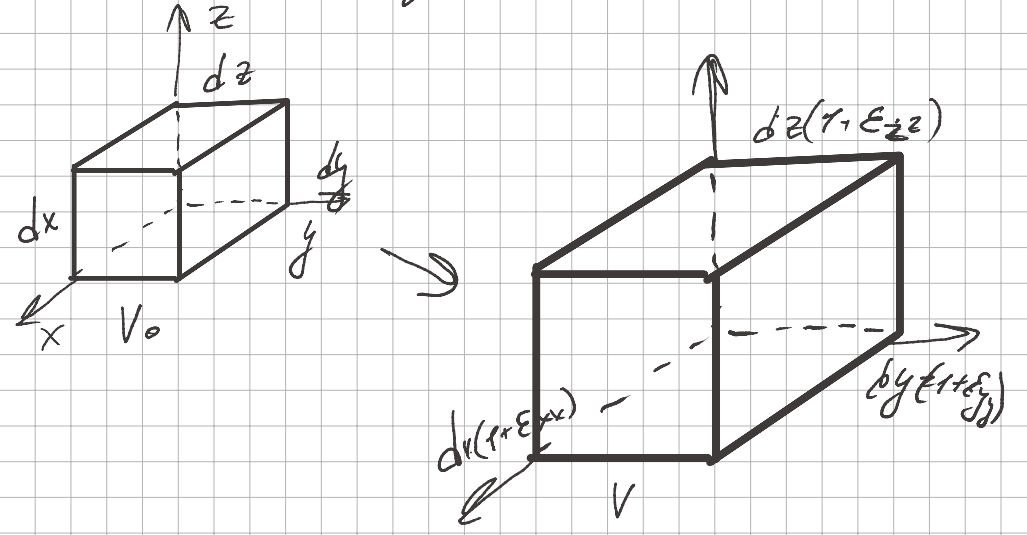 z
dz
dx
dy
y
x
V₀
dz(1+εzz)
dy(1+εyy)
dx(1+εxx)
V